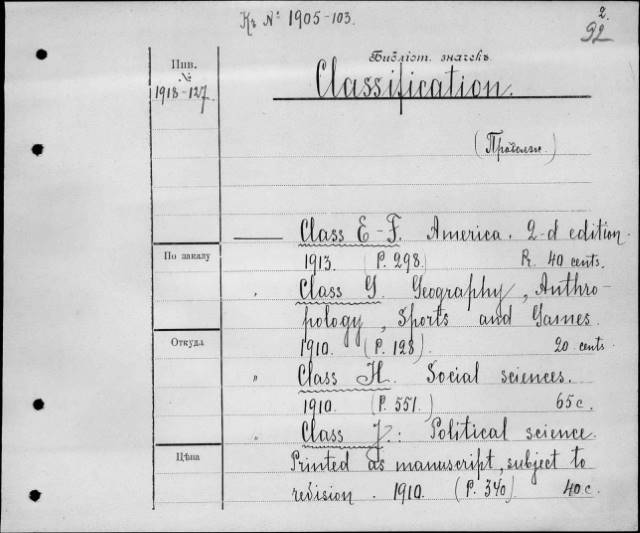 Къ № 1905-103.
2.
92
Библіот. значекъ
Classification.
Инв.
№
1918-127.
(Продолж.)
Class E-F. America. 2-d edition.
1913. (P. 298.) Pr. 40 cents.
По заказу
" Class G. Geography, Anthro-
pology, Sports and Games.
1910. (P. 128). 20 cents
Откуда
" Class H. Social sciences.
1910. (P. 551.) 65 c.
" Class J.: Political science.
Цѣна
Printed as manuscript, subject to
revision. 1910. (P. 340). 40 c.